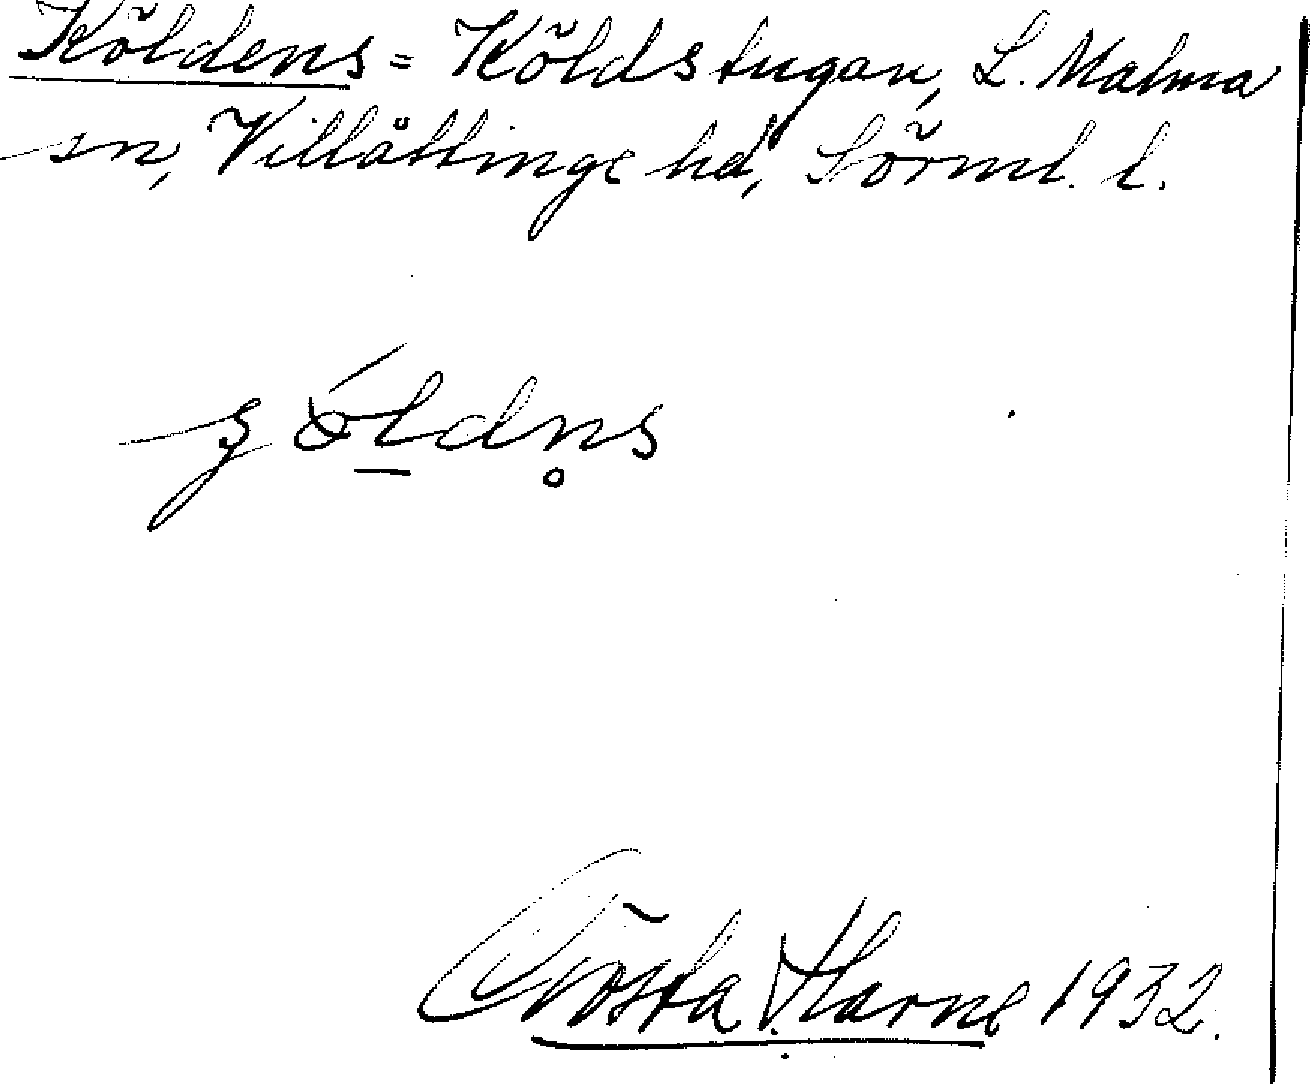 Köldens = Köldstugan, L. Malma
sn, Villåttinge hd, Sörml. l.
Gösta Harne 1932.